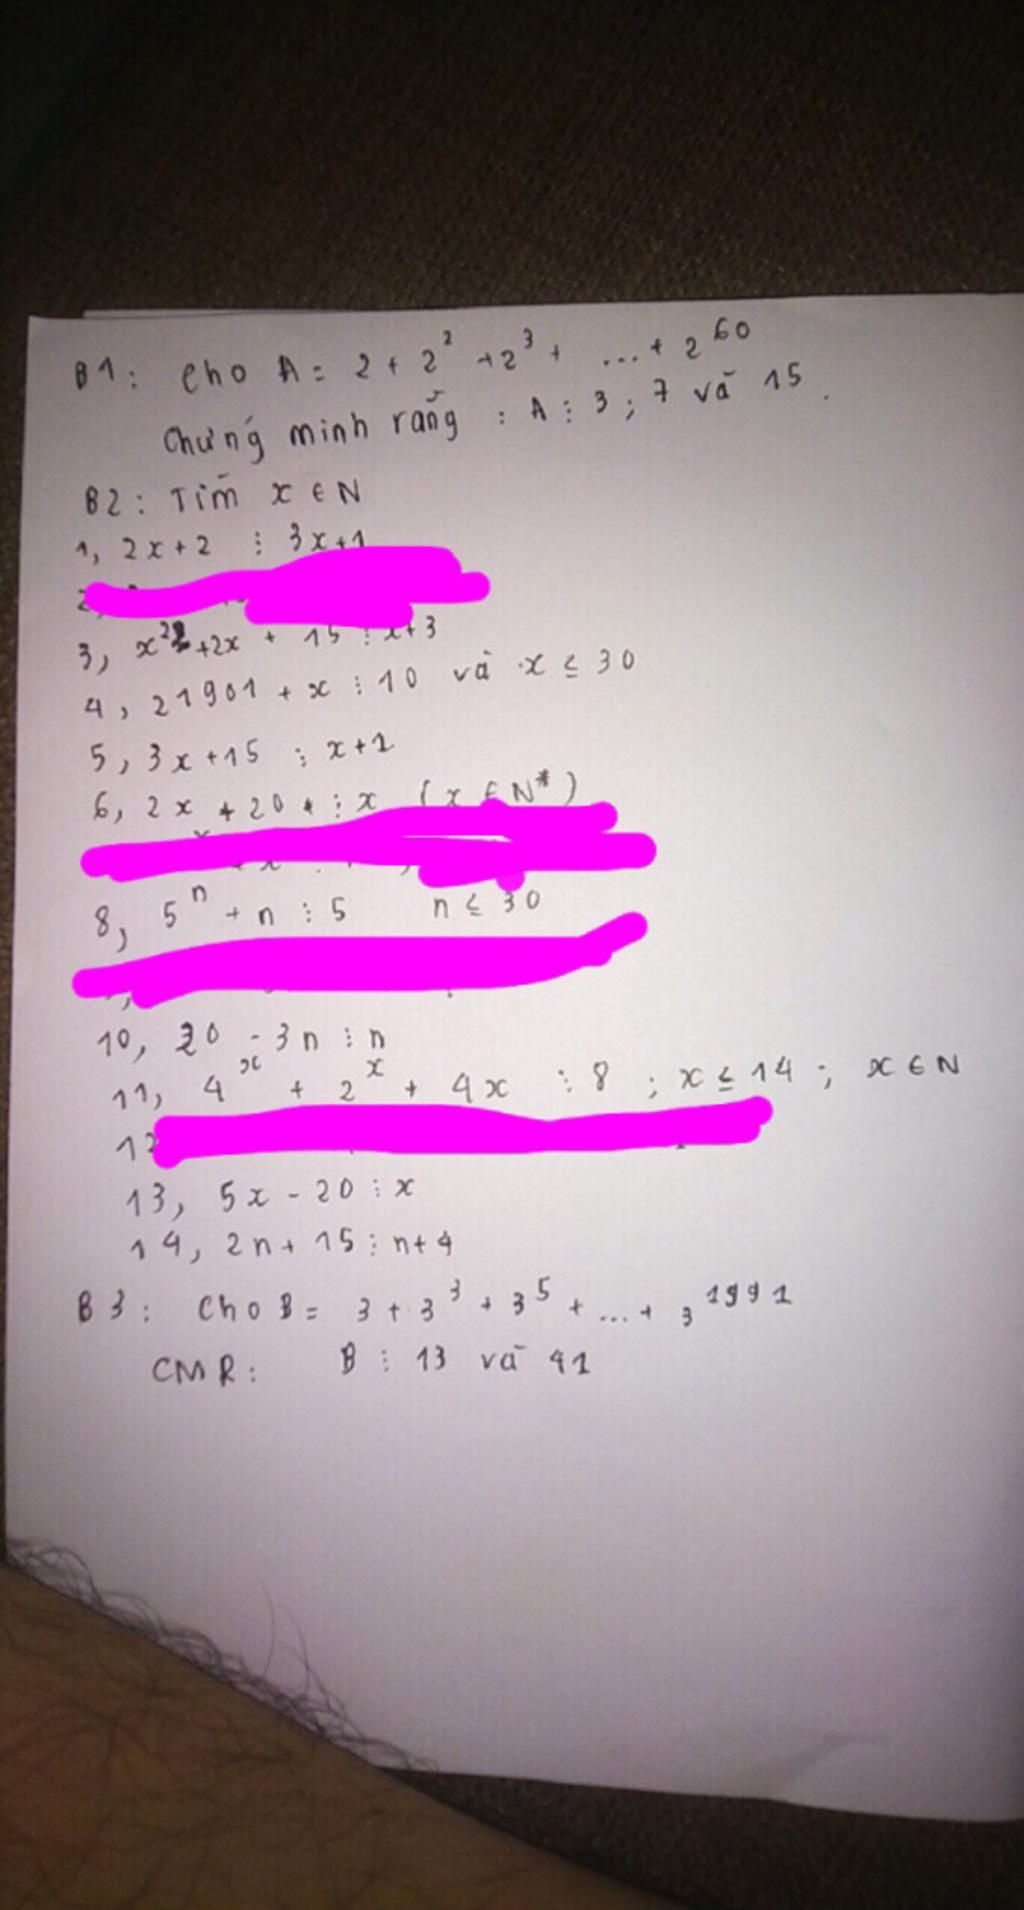 B1: Cho A = 2 + 2² + 2³ + ... + 2⁶⁰
Chứng minh rằng : A ⋮ 3 ; 7 và 15.
B2: Tìm x ∈ N
1, 2x + 2 ⋮ 3x + 1
3, x² + 2x + 15 ⋮ x + 3
4, 21901 + x ⋮ 10 và x ≤ 30
5, 3x + 15 ⋮ x + 1
6, 2x + 20 ⋮ x (x ∈ N*)
8, 5ⁿ + n ⋮ 5 n ≤ 30
10, 20 - 3n ⋮ n
11, 4ˣ + 2ˣ + 4x ⋮ 8 ; x ≤ 14 ; x ∈ N
12
13, 5x - 20 ⋮ x
14, 2n + 15 ⋮ n + 4
B3: Cho B = 3 + 3³ + 3⁵ + ... + 3¹⁹⁹¹
CMR: B ⋮ 13 và 41